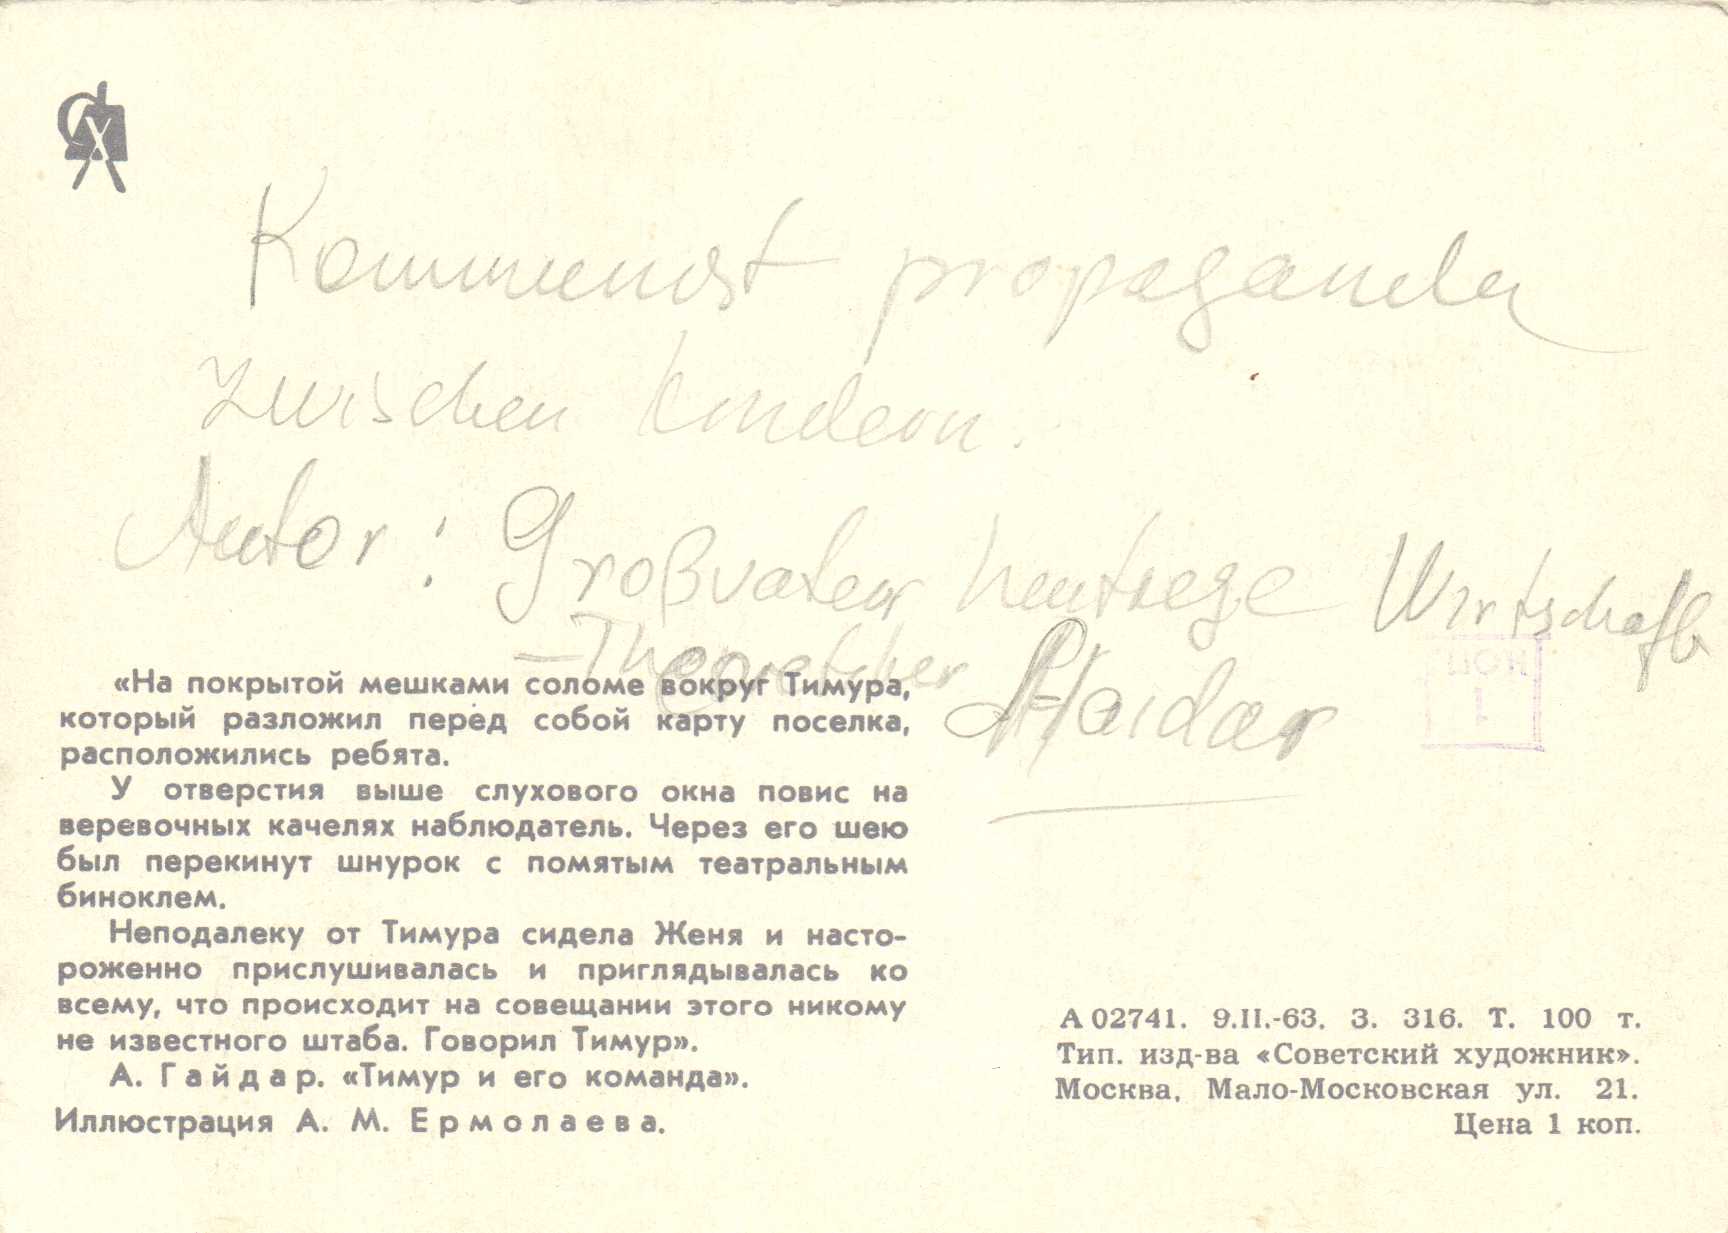 Kommunist propaganda
zwischen Kindern.
Autor: Großvater heutzege Wirtschaft
-Theoretcher Haidar
«На покрытой мешками соломе вокруг Тимура,
который разложил перед собой карту поселка,
расположились ребята.
У отверстия выше слухового окна повис на
веревочных качелях наблюдатель. Через его шею
был перекинут шнурок с помятым театральным
биноклем.
Неподалеку от Тимура сидела Женя и насто-
роженно прислушивалась и приглядывалась ко
всему, что происходит на совещании этого никому
не известного штаба. Говорил Тимур».
А. Гайдар. «Тимур и его команда».
Иллюстрация А. М. Ермолаева.
1
ПОК
А 02741. 9.II.-63. З. 316. Т. 100 т.
Тип. изд-ва «Советский художник».
Москва, Мало-Московская ул. 21.
Цена 1 коп.